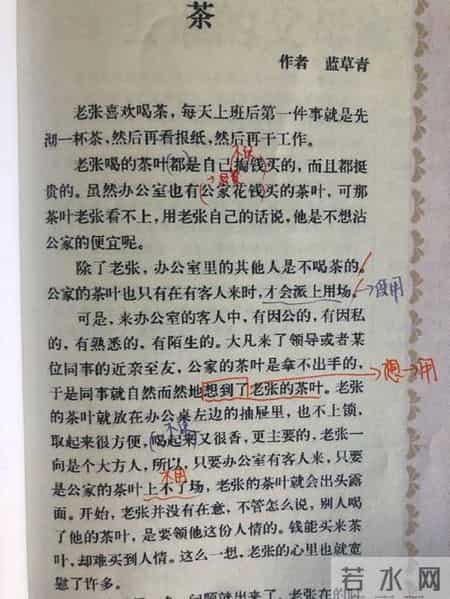 茶
作者 蓝草青
老张喜欢喝茶，每天上班后第一件事就是先
沏一杯茶，然后再看报纸，然后再干工作。
老张喝的茶叶都是自己掏钱买的，而且都挺
贵的。虽然办公室也有公家花钱买的茶叶，可那
茶叶老张看不上，用老张自己的话说，他是不想沾
公家的便宜呢。
除了老张，办公室里的其他人是不喝茶的。
公家的茶叶也只有在有客人来时，才会派上用场。
没用
可是，来办公室的客人中，有因公的，有因私
的，有熟悉的，有陌生的。大凡来了领导或者某
位同事的近亲至友，公家的茶叶是拿不出手的，
于是同事就自然而然地想到了老张的茶叶。老张
想→用
的茶叶就放在办公桌左边的抽屉里，也不上锁，
取起来很方便，喝起来又很香，更主要的，老张一
向是个大方人，所以，只要办公室有客人来，只要
不用
是公家的茶叶上不了场，老张的茶叶就会出头露
面。开始，老张并没有在意，不管怎么说，别人喝
了他的茶叶，是要领他这份人情的。钱能买来茶
叶，却难买到人情。这么一想，老张的心里也就宽
慰了许多。
问题就出来了，老张在的
若水网